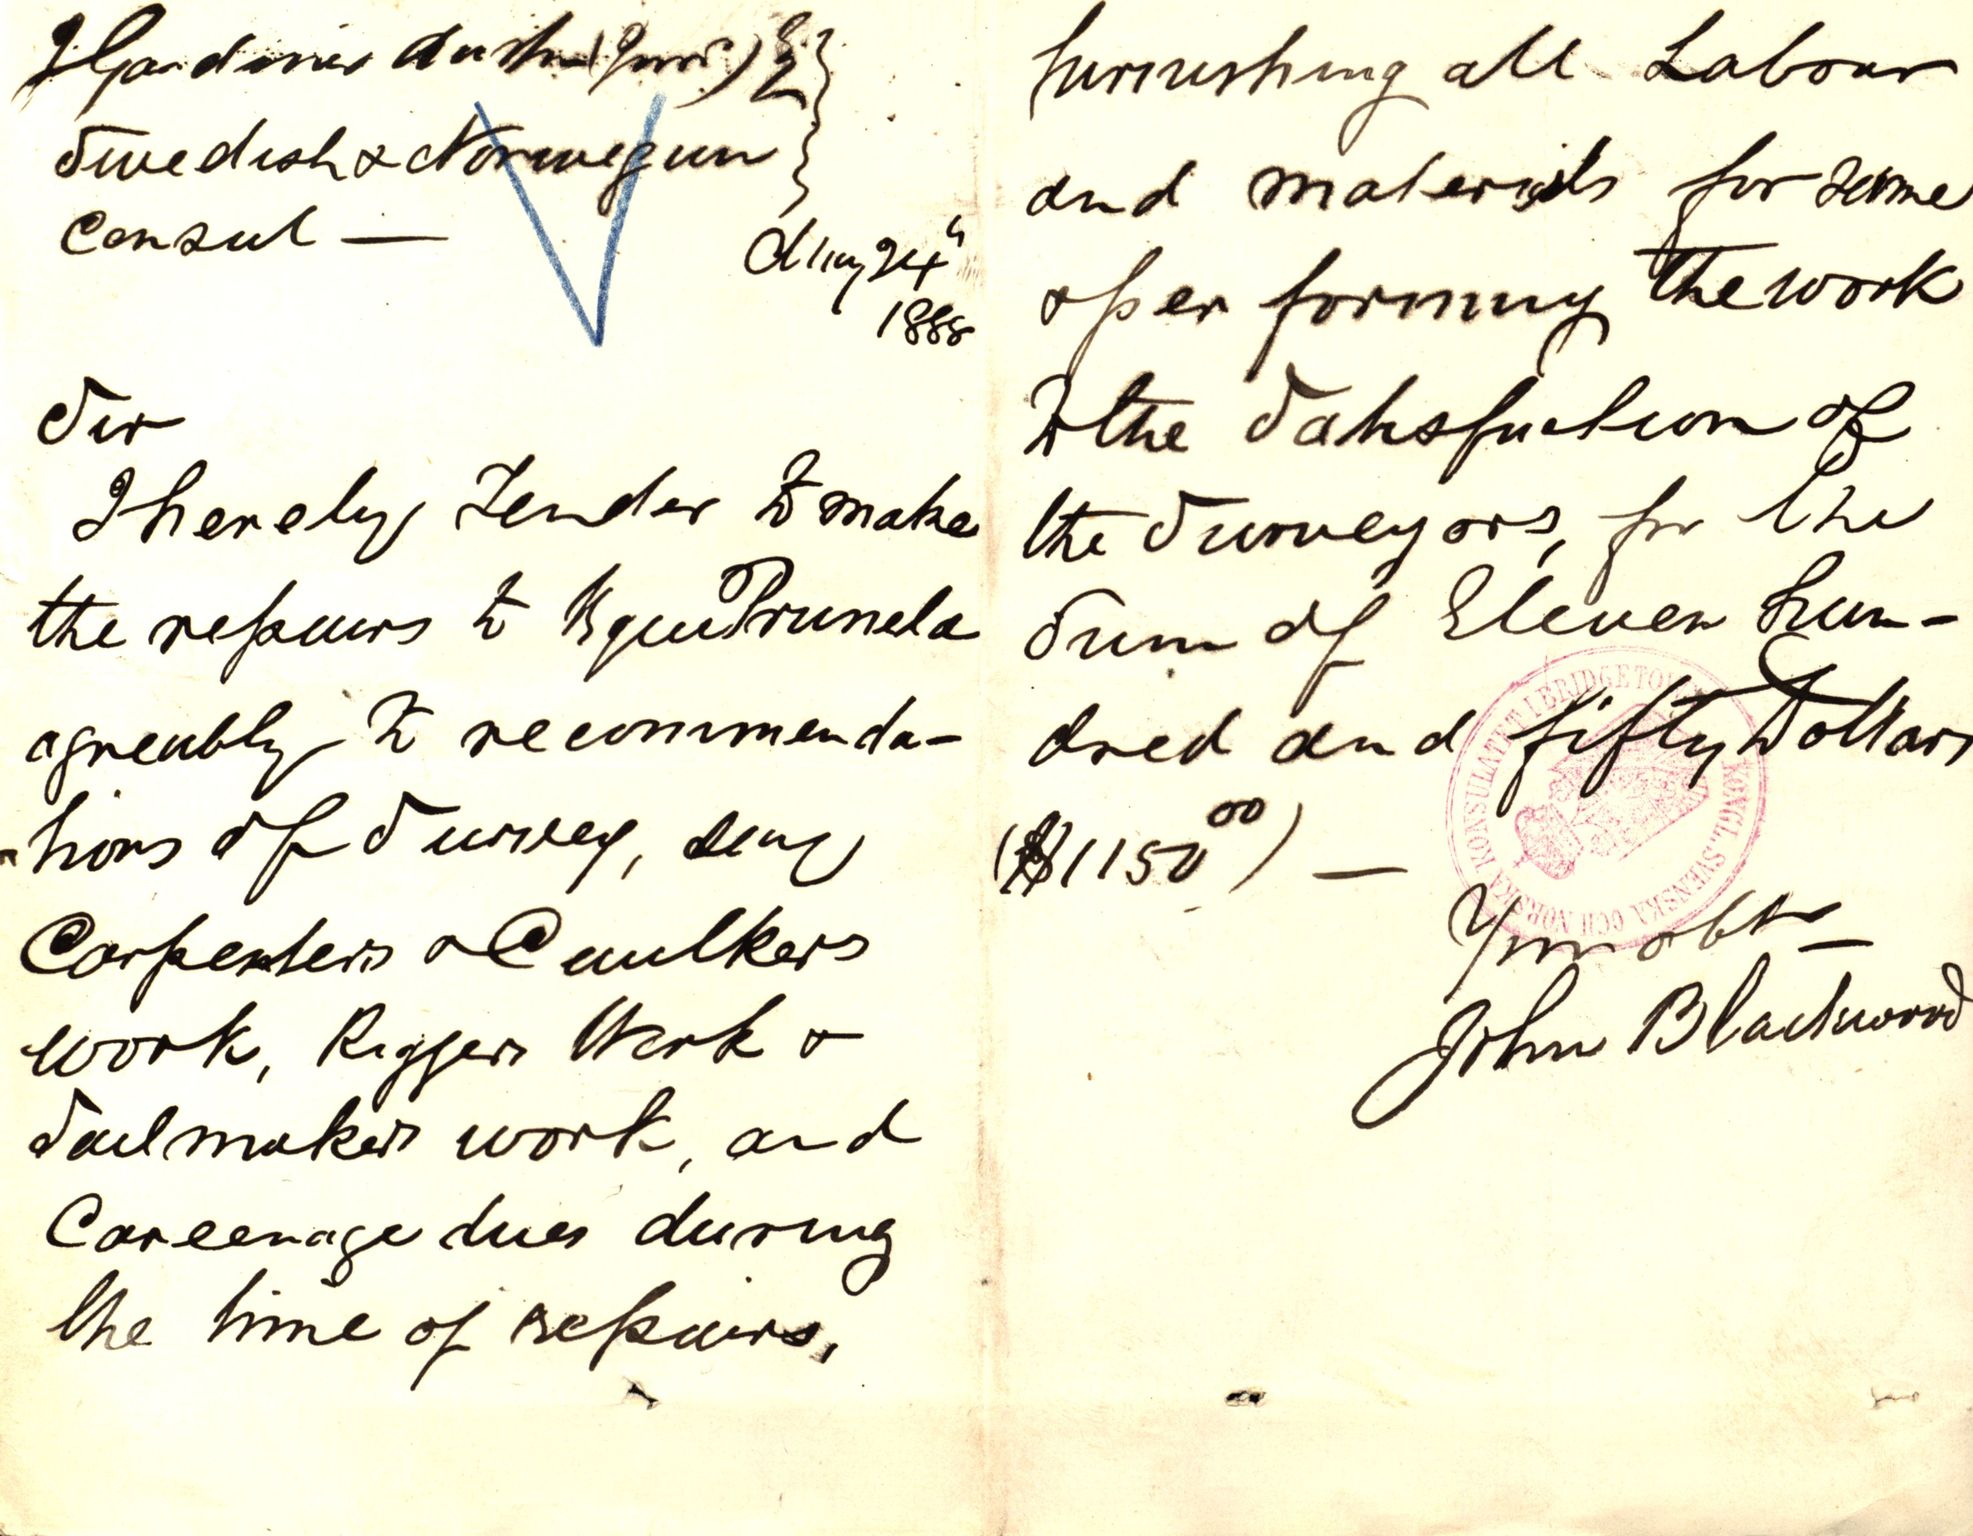 J Gardiner Austin (Junr) Esq
Swedish & Norwegian
Consul —
Augy 24"
1888
Sir
I hereby Tender to make
the repairs to Bgne Prunela
agreeably to recommenda-
-tions of Survey, say
Carpenters & Caulkers
work, Riggers Work &
Sailmakers work, and
Careenage dues during
the time of repairs,
furnishing all Labour
and materials for same
& performing the work
to the Satisfaction of
the Surveyors, for the
Sum of Eleven hun-
dred and fifty Dollars
($1150 00) —
Your obt
John Blackwood
KONGL. SVENSKA OCH NORSKA KONSULATET I BRIDGETOWN